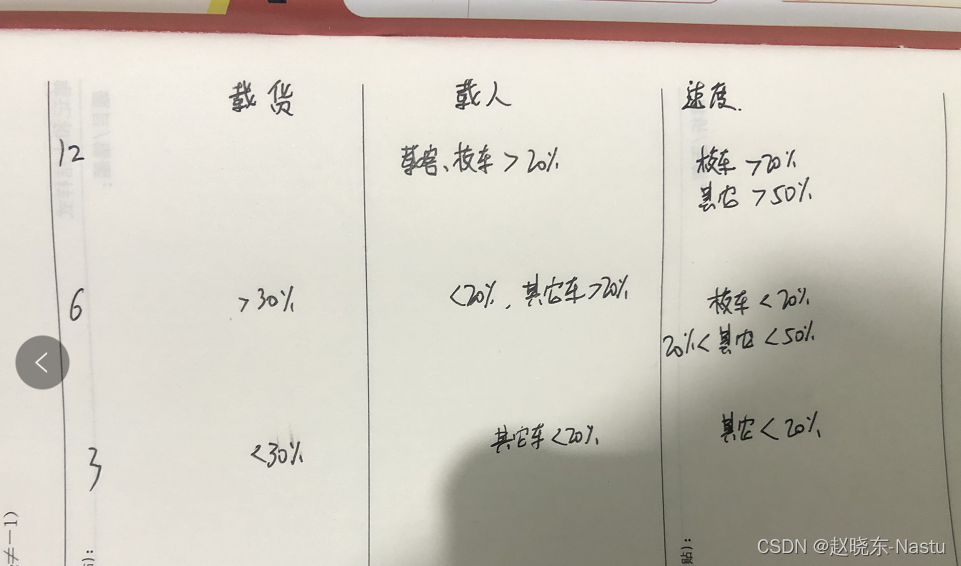 载货 载人 速度.
12 营客、校车 >20% 校车 >20%
其它 >50%
6 >30% <20%, 其它车 >20% 校车 <20%
20% < 其它 <50%
3 <30% 其它车 <20% 其它 < 20%
≠-1)
):
贴):
CSDN @赵晓东-Nastu